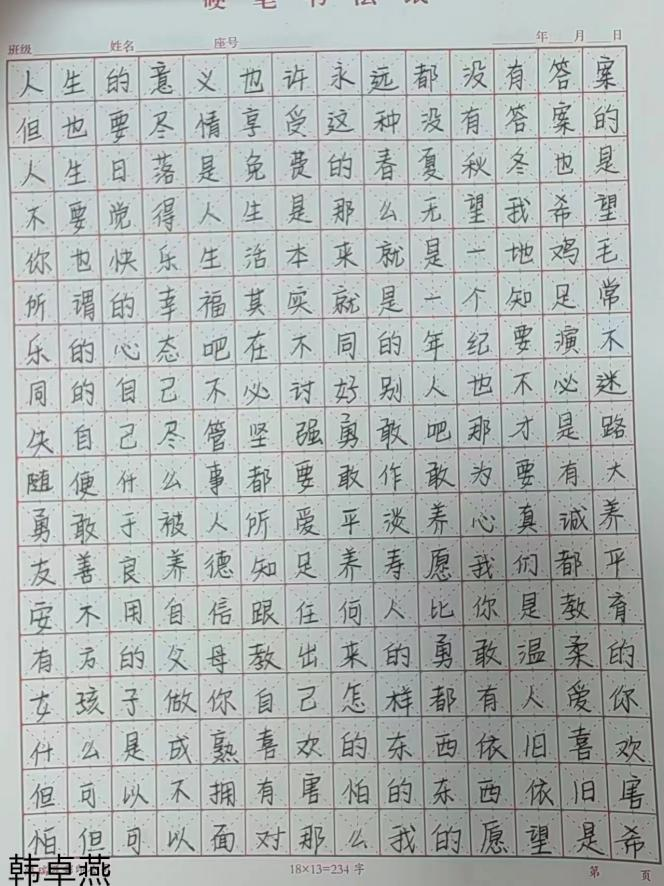 硬笔书法纸
班级 姓名 座号 年 月 日
人生的意义也许永远都没有答案
但也要尽情享受这种没有答案的
人生日落是免费的春夏秋冬也是
不要觉得人生是那么无望我希望
你也快乐生活本来就是一地鸡毛
所谓的幸福其实就是一个知足常
乐的心态吧在不同的年纪要演不
同的自己不必讨好别人也不必迷
失自己尽管坚强勇敢吧那才是路
随便什么事都要敢作敢为要有大
勇敢于被人所爱平淡养心真诚养
友善良养德知足养寿愿我们都平
安不用自信跟任何人比你是教育
有方的父母教出来的勇敢温柔的
女孩子做你自己怎样都有人爱你
什么是成熟喜欢的东西依旧喜欢
但可以不拥有害怕的东西依旧害
怕但可以面对那么我的愿望是希
韩卓燕
18×13=234 字
第 页